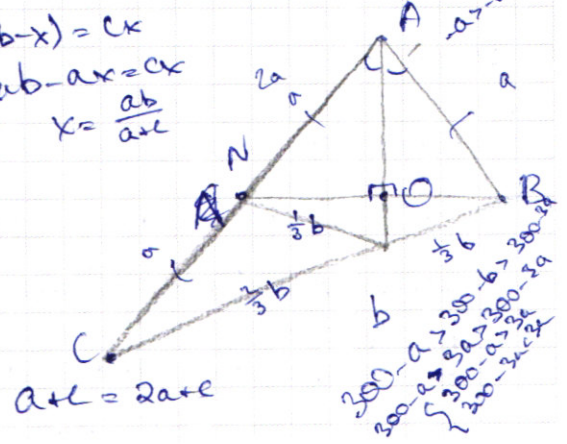 b-x) = cx
ab-ax=cx
x= ab/a+c
A
2a
a
a
N
O
B
1/3 b
1/3 b
a
2/3 b
b
C
a+c = 2a+c
300-a > 300-b > 300-3a
300-a > 3a > 300-3a
{ 300-a > 3a
300-3a < 3a